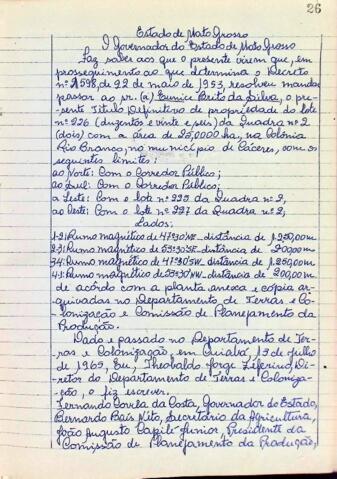 26
Estado de Mato Grosso
O Governador do Estado de Mato Grosso
Faz saber aos que o presente virem que, em
prosseguimento ao que determina o Decreto
nº 1.598, de 22 de maio de 1953, resolveu mandar
passar ao sr. (a) Eunice Brito da Silva, o pre-
sente Titulo Definitivo de propriedade do lote
nº 226 (duzentos e vinte e seis) da Quadra nº 2
(dois) com a área de 25,0000 ha, na Colônia
Rio Branco, no município de Cáceres, com os
seguintes limites:
ao Norte: Com o Corredor Público;
ao Sul: Com o Corredor Público;
a Leste: Com o lote nº 225 da Quadra nº 2;
ao Oeste: Com o lote nº 227 da Quadra nº 2,
Lados:
1-2: Rumo magnético de 47º30'SE distância de 1.250,00 m
2-3: Rumo magnético de 53º30' distância de 200,00 m
3-4: Rumo magnético de 47º30' distância de 1.250,00 m
4-1: Rumo magnético de 53º30' distância de 200,00 m
de acôrdo com a planta anexa e cópia ar-
quivadas no Departamento de Terras e Co-
lonização e Comissão de Planejamento da
Produção.
Dado e passado no Departamento de Ter-
ras e Colonização, em Cuiabá, 13 de julho
de 1965, Eu, Theobaldo Jorge Ziferino, Di-
retor do Departamento de Terras e Coloniza-
ção, o fiz escrever.
Fernando Corrêa da Costa, Governador do Estado,
Bernardo Baís Neto, Secretário da Agricultura,
João Augusto Capilé Júnior, Presidente da
Comissão de Planejamento da Produção,